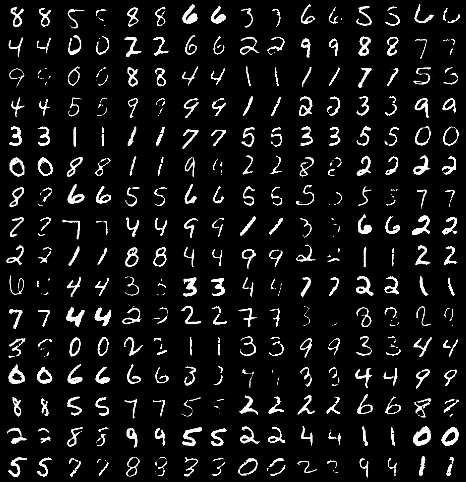 8 8 5 5 8 8 6 6 3 3 6 6 5 5 6 6
4 4 0 0 2 2 6 6 2 2 9 9 8 8 7 7
9 9 0 0 8 8 4 4 1 1 1 1 7 7 5 5
4 4 5 5 9 9 9 9 1 1 2 2 3 3 9 9
3 3 1 1 1 1 7 7 5 5 3 3 5 5 0 0
0 0 8 8 1 1 9 9 2 2 8 8 2 2 2 2
8 8 6 6 5 5 6 6 5 5 5 5 5 5 7 7
7 7 7 7 4 4 9 9 1 1 3 3 6 6 2 2
2 2 1 1 8 8 4 4 9 9 2 2 1 1 2 2
6 4 4 3 3 3 3 4 4 7 7 2 2 1 1
7 7 4 4 2 2 2 2 7 7 3 8 8 2 2
3 0 0 2 2 1 1 3 3 9 9 3 3 4 4
0 0 6 6 6 6 3 3 7 3 3 4 4 9 9
8 8 5 5 7 7 5 5 2 2 2 2 6 6 8
2 2 8 8 9 9 5 5 2 2 4 4 1 1 0 0
5 5 7 7 8 8 3 3 0 0 2 2 9 9 1 1